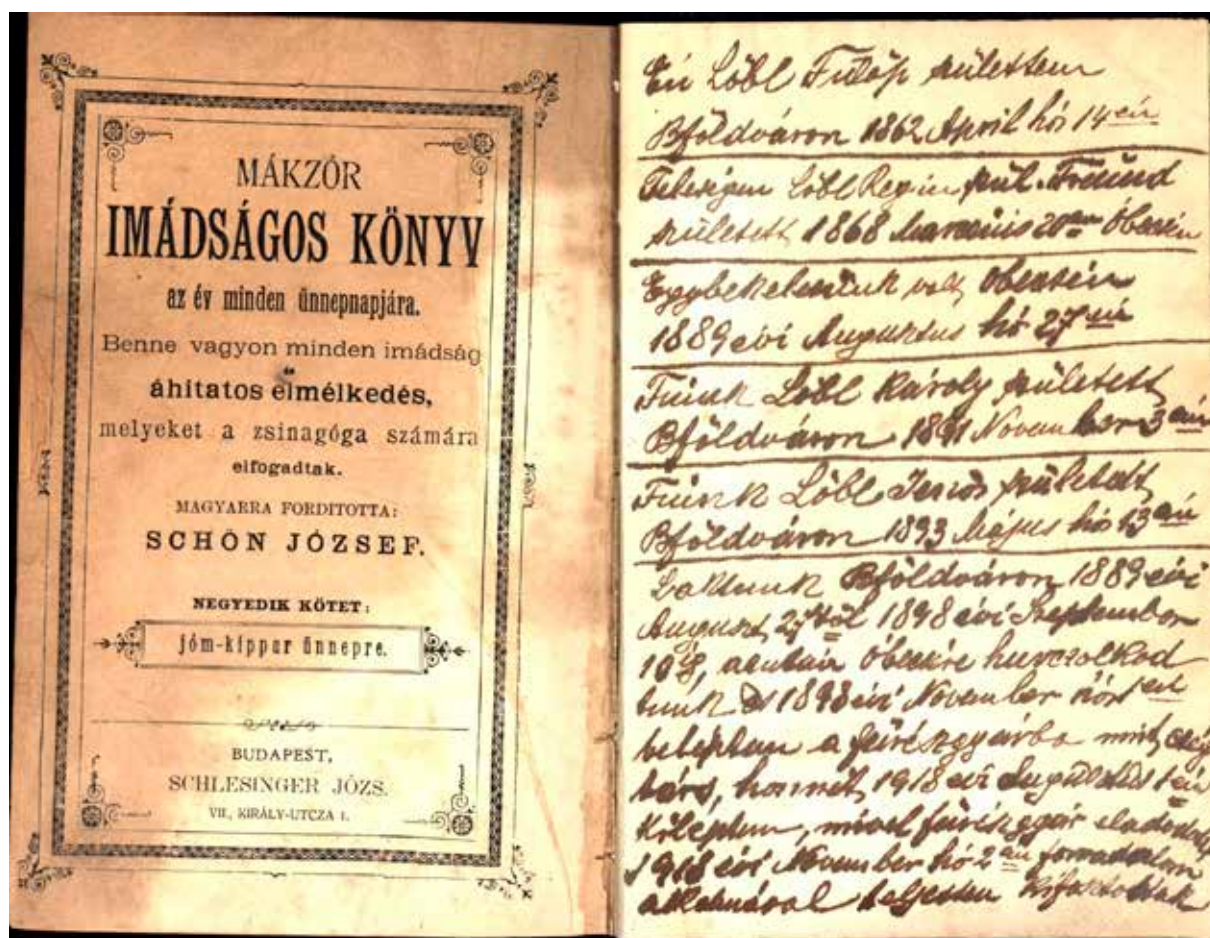 MÁKZÓR
IMÁDSÁGOS KÖNYV
az év minden ünnepnapjára.
Benne vagyon minden imádság
és
áhitatos elmélkedés,
melyeket a zsinagóga számára
elfogadtak.
MAGYARRA FORDITOTTA:
SCHÖN JÓZSEF.
NEGYEDIK KÖTET:
jóm-kippur ünnepre.
BUDAPEST,
SCHLESINGER JÓZS.
VII., KIRÁLY-UTCZA 1.
Én Löbl Fülöp születtem
Bföldváron 1862 April hó 14 én
Feleségem Löbl Regin szül. Freünd
született 1868 Marczius 20 án Óbecsén
Egybekelesünk volt Óbecsén
1889 évi Augusztus hó 27 én
Fiúnk Löbl Károly született
Bföldváron 1891 November 3 án
Fiúnk Löbl Jenő született
Bföldváron 1893 Május hó 13 án
Laktunk Bföldváron 1889 évi
August 27től 1898 évi September
10ig, azután Óbecsére hurczolkod
tunk és 1898 évi November hó 1 én
beleptem a fürészgyárba mint czég
társ, honnét 1918 évi Augusztus 1 én
kiléptem, mivel fürészgyár eladodott,
1918 évi November hó 2 án forradalom
alkalmával teljesen kifosztottak